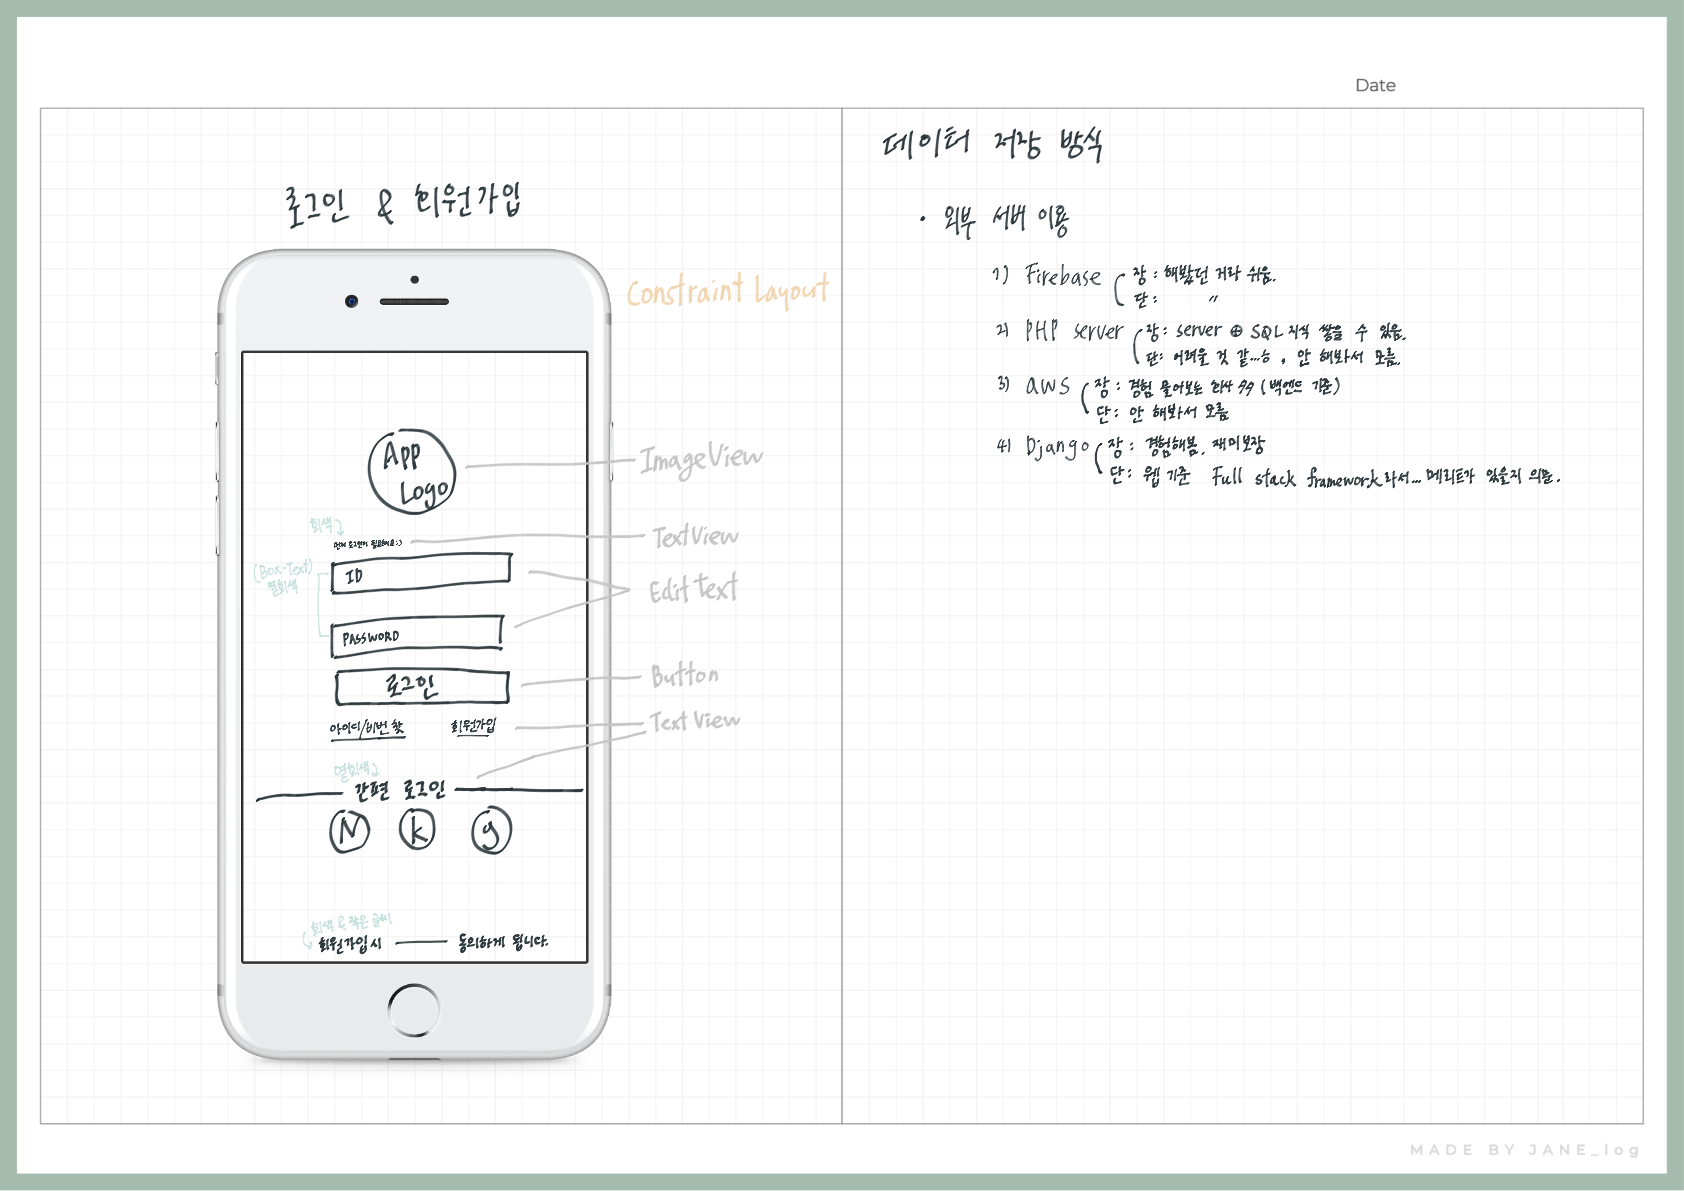 Date
로그인 & 회원가입
Constraint Layout
App
Logo
ImageView
회색
먼저 로그인이 필요해요:)
TextView
(Box-Text)
옅회색
ID
Edit Text
PASSWORD
로그인
Button
아이디/비번 찾
회원가입
Text View
옅회색
간편 로그인
N
k
g
회색 & 작은 글씨
회원가입시 —— 동의하게 됩니다.
데이터 저장 방식
• 외부 서버 이용
1) Firebase
장 : 해봤던 거라 쉬움.
단 : 〃
2) PHP server
장 : server ⊕ SQL 지식 쌓을 수 있음.
단 : 어려울 것 같...ㅎ, 안 해봐서 모름.
3) aws
장 : 경험 물어보는 회사 有有 (백엔드 기준)
단 : 안 해봐서 모름
4) Django
장 : 경험해봄, 재미보장
단 : 웹 기준 Full stack framework라서... 메리트가 있을지 의문.
MADE BY JANE_log